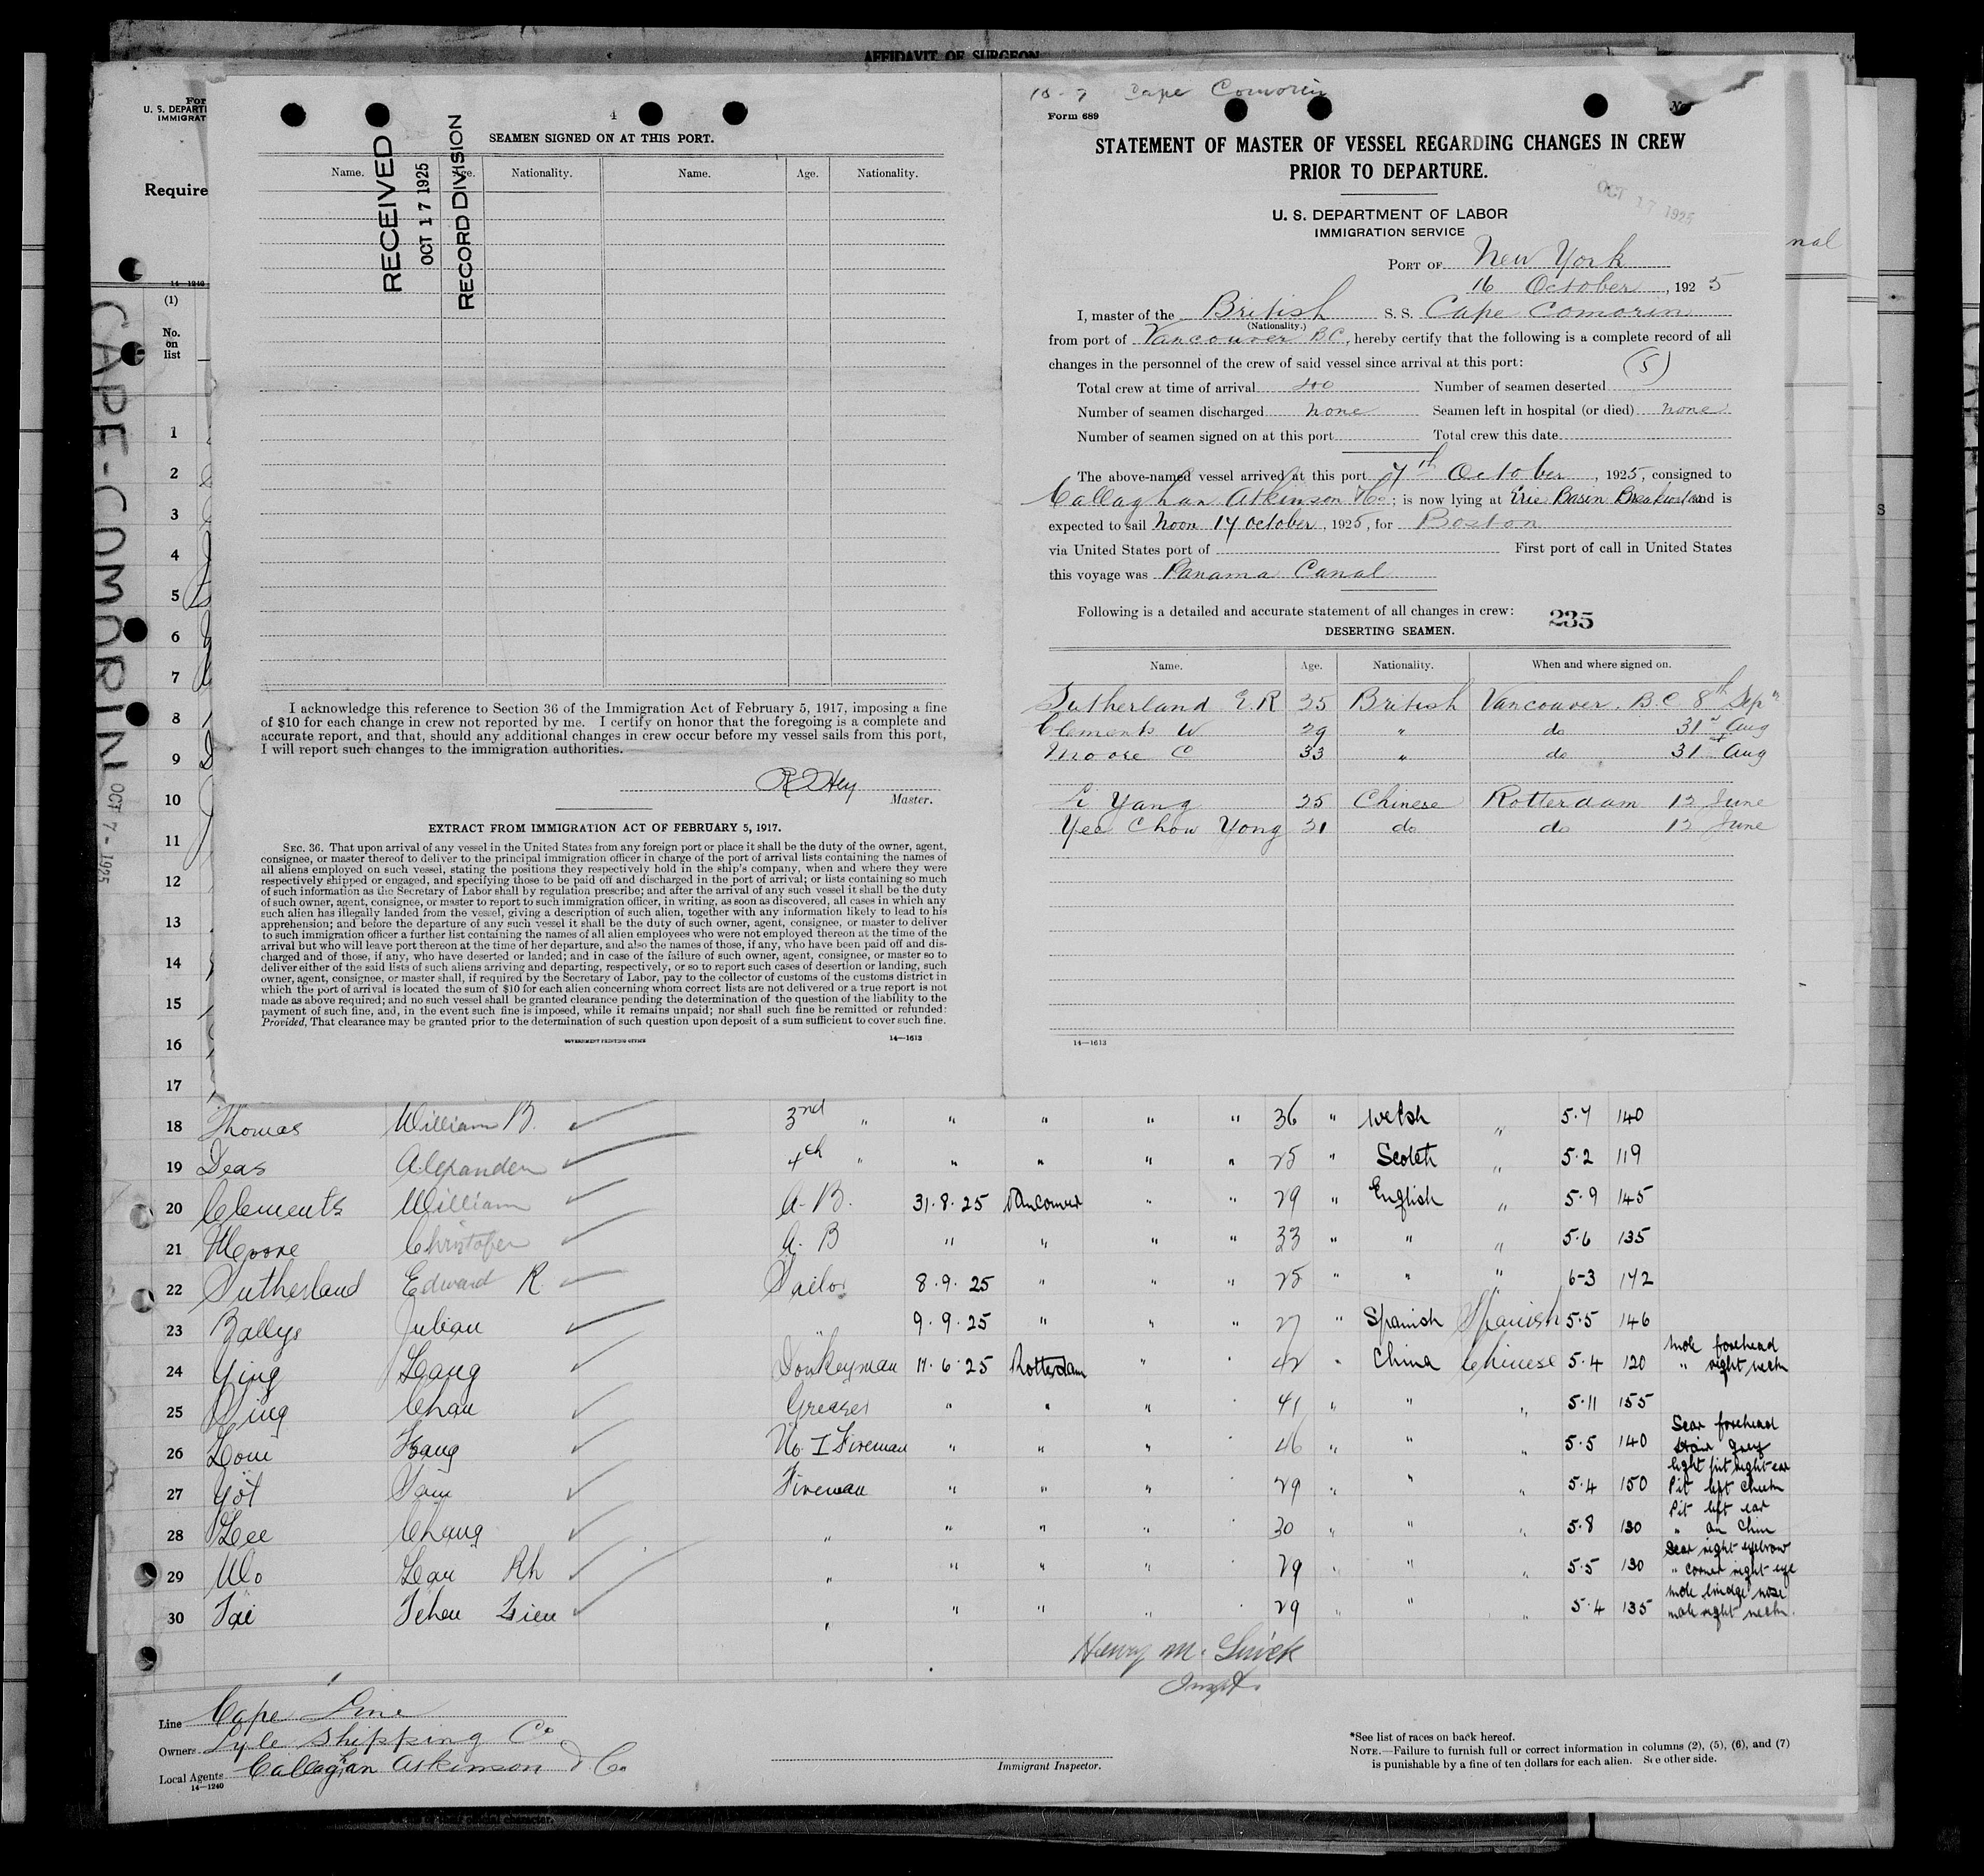 AFFIDAVIT OF SURGEON
For
U. S. DEPARTI
IMMIGRAT
Require
14—1240
(1)
No.
on
list
CAPE-COMORIN OCT 7 - 1925
1
2
3
4
5
6
7
8
9
10
11
12
13
14
15
16
17
4
SEAMEN SIGNED ON AT THIS PORT.
Name. Age. Nationality. Name. Age. Nationality.
RECEIVED
OCT 17 1925
RECORD DIVISION
I acknowledge this reference to Section 36 of the Immigration Act of February 5, 1917, imposing a fine
of $10 for each change in crew not reported by me. I certify on honor that the foregoing is a complete and
accurate report, and that, should any additional changes in crew occur before my vessel sails from this port,
I will report such changes to the immigration authorities.
Master.
EXTRACT FROM IMMIGRATION ACT OF FEBRUARY 5, 1917.
SEC. 36. That upon arrival of any vessel in the United States from any foreign port or place it shall be the duty of the owner, agent,
consignee, or master thereof to deliver to the principal immigration officer in charge of the port of arrival lists containing the names of
all aliens employed on such vessel, stating the positions they respectively hold in the ship's company, when and where they were
respectively shipped or engaged, and specifying those to be paid off and discharged in the port of arrival; or lists containing so much
of such information as the Secretary of Labor shall by regulation prescribe; and after the arrival of any such vessel it shall be the duty
of such owner, agent, consignee, or master to report to such immigration officer, in writing, as soon as discovered, all cases in which any
such alien has illegally landed from the vessel, giving a description of such alien, together with any information likely to lead to his
apprehension; and before the departure of any such vessel it shall be the duty of such owner, agent, consignee, or master to deliver
to such immigration officer a further list containing the names of all alien employees who were not employed thereon at the time of the
arrival but who will leave port thereon at the time of her departure, and also the names of those, if any, who have been paid off and dis-
charged and of those, if any, who have deserted or landed; and in case of the failure of such owner, agent, consignee, or master so to
deliver either of the said lists of such aliens arriving and departing, respectively, or so to report such cases of desertion or landing, such
owner, agent, consignee, or master shall, if required by the Secretary of Labor, pay to the collector of customs of the customs district in
which the port of arrival is located the sum of $10 for each alien concerning whom correct lists are not delivered or a true report is not
made as above required; and no such vessel shall be granted clearance pending the determination of the question of the liability to the
payment of such fine, and, in the event such fine is imposed, while it remains unpaid; nor shall such fine be remitted or refunded:
Provided, That clearance may be granted prior to the determination of such question upon deposit of a sum sufficient to cover such fine.
GOVERNMENT PRINTING OFFICE 14—1613
Cape Comorin
Form 689 No.
STATEMENT OF MASTER OF VESSEL REGARDING CHANGES IN CREW
PRIOR TO DEPARTURE.
OCT 17 1925
U. S. DEPARTMENT OF LABOR
IMMIGRATION SERVICE
PORT OF New York
16 October, 1925
I, master of the British S. S. Cape Comorin
(Nationality.)
from port of Vancouver BC, hereby certify that the following is a complete record of all
changes in the personnel of the crew of said vessel since arrival at this port:
Total crew at time of arrival 40 Number of seamen deserted (5)
Number of seamen discharged none Seamen left in hospital (or died) none
Number of seamen signed on at this port Total crew this date
The above-named vessel arrived at this port 7th October, 1925, consigned to
Callaghan Atkinson & Co; is now lying at Erie Basin Breakwater and is
expected to sail Noon 17 October, 1925, for Boston
via United States port of First port of call in United States
this voyage was Panama Canal
Following is a detailed and accurate statement of all changes in crew: 235
DESERTING SEAMEN.
Name. Age. Nationality. When and where signed on.
Sutherland E.R 25 British Vancouver. B.C 8th Sep
Clements W 29 " do 31st Aug
Moore C 33 " do 31st Aug
Li Yang 25 Chinese Rotterdam 12 June
Yee Chow Yong 31 do do 12 June
14—1613
nal
18 Thomas William B. 3rd " " " " " 36 " Welsh " 5.7 140
19 Deas Alexander 4th " " " " " 25 " Scotch " 5.2 119
20 Clements William A.B. 31.8.25 Vancouver " " 29 " English " 5.9 145
21 Moore Christofer A.B " " " " 33 " " " 5.6 135
22 Sutherland Edward R. Sailor 8.9.25 " " " 25 " " " 6-3 172
23 Ballys Julian " 9.9.25 " " " 27 " Spanish Spanish 5.5 146
24 Ying Leang Donkeyman 11.6.25 Rotterdam " " 42 " China Chinese 5.4 120 mole forehead " right neck
25 Ping Chau Greaser " " " " 41 " " " 5.11 155
26 Lom Kang No. I Fireman " " " " 46 " " " 5.5 140 Scar forehead Hair grey
27 Yot Sam Fireman " " " " 29 " " " 5.4 150 light pit right ear Pit left cheek
28 Lee Chang " " " " " 30 " " " 5.8 130 Pit left ear " on chin
29 Wo Lau Ah " " " " " 29 " " " 5.5 130 Scar right eyebrow " corner right eye
30 Tai Tchen Sien " " " " " 29 " " " 5.4 135 mole bridge nose mole right neck.
Henry M. Quick
Inspt.
Line Cape Line
Owners Lyle Shipping Co
Local Agents Callaghan Atkinson & Co
14—1240
Immigrant Inspector.
*See list of races on back hereof.
NOTE.—Failure to furnish full or correct information in columns (2), (5), (6), and (7)
is punishable by a fine of ten dollars for each alien. See other side.